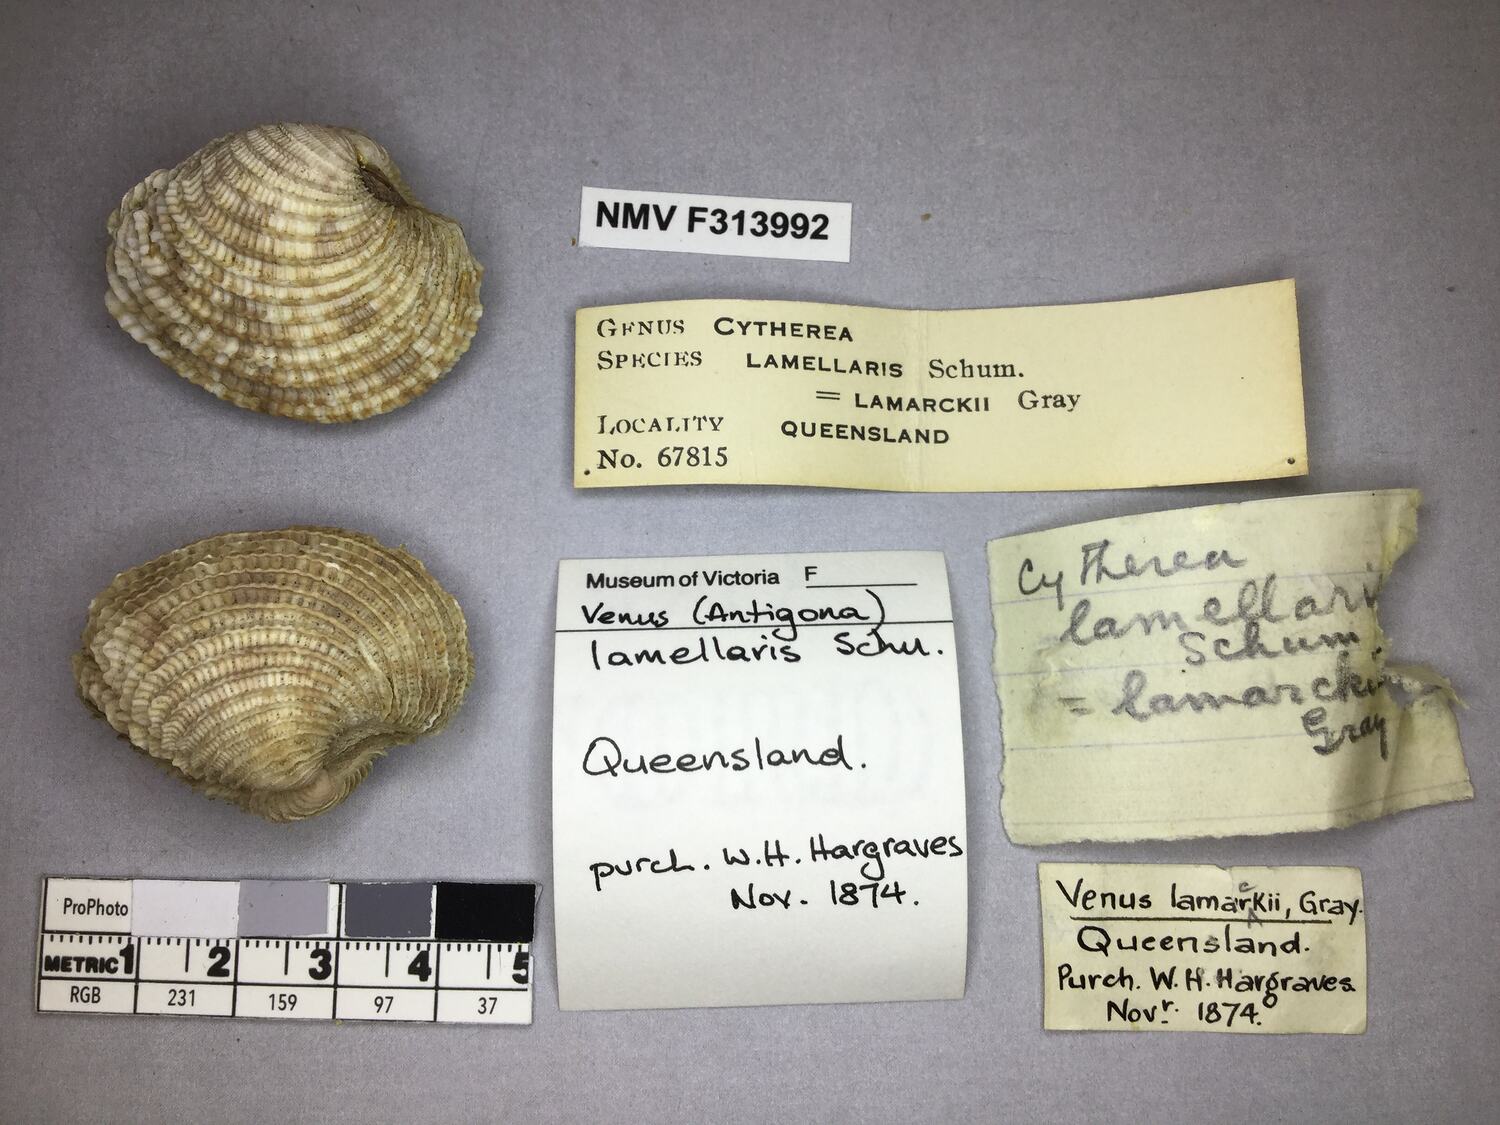 NMV F313992
GENUS CYTHEREA
SPECIES LAMELLARIS Schum.
= LAMARCKII Gray
LOCALITY QUEENSLAND
No. 67815
Museum of Victoria F
Venus (Antigona)
lamellaris Schu.
Queensland.
purch. W.H. Hargraves
Nov. 1874.
Cytherea
lamellari
Schum.
= lamarckii
Gray
Venus lamarckii, Gray.
Queensland.
Purch. W.H. Hargraves
Novr. 1874.
ProPhoto
METRIC 1 2 3 4 5
RGB 231 159 97 37